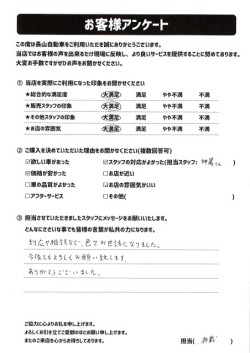 お客様アンケート
この度は長山自動車をご利用いただき誠にありがとうございます。
当店ではお客様の声を出来るだけ現場に反映し、より良いサービスを提供することに努めております。
大変お手数ですがぜひお声をお聞かせください。
① 当店を実際にご利用になった印象をお聞かせください
★総合的な満足度 大満足 満足 やや不満 不満
★販売スタッフの印象 大満足 満足 やや不満 不満
★その他スタッフの印象 大満足 満足 やや不満 不満
★お店の雰囲気 大満足 満足 やや不満 不満
② ご購入を決めていただいた理由をお聞かせください(複数回答可)
☑欲しい車があった ☑スタッフの対応がよかった(担当スタッフ: さん)
☑価格が安かった □お店が近い
□車の品質がよかった □お店の雰囲気がいい
□アフターサービス □その他( )
③ 担当させていただきましたスタッフにメッセージをお願いいたします。
どんなにささいな事でも皆様の言葉が私共の力になります。
対応や相談など、色々お世話になりました。
今後ともよろしくお願い致します。
ありがとうございました。
ご協力に心よりお礼を申し上げます。
よろしくお引き立てご愛顧のほどお願い申し上げます。
またのご来店を心からお待ちしております。
担当( )